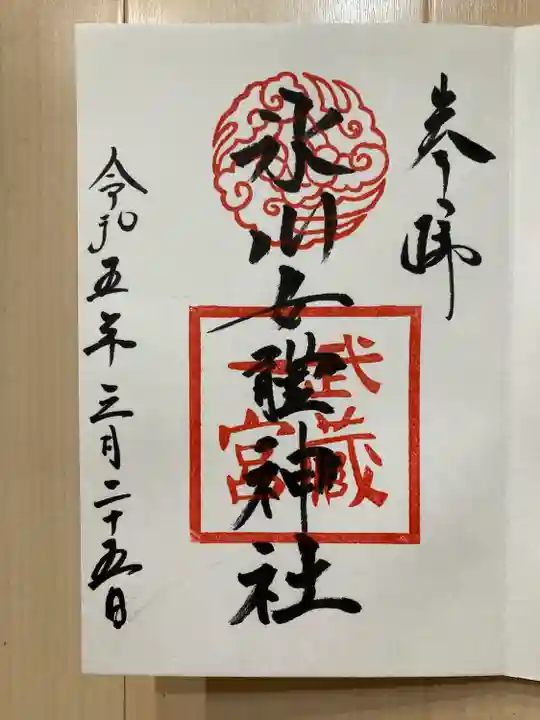 参拝
氷川女體神社
武蔵
一宮
令和五年三月二十五日